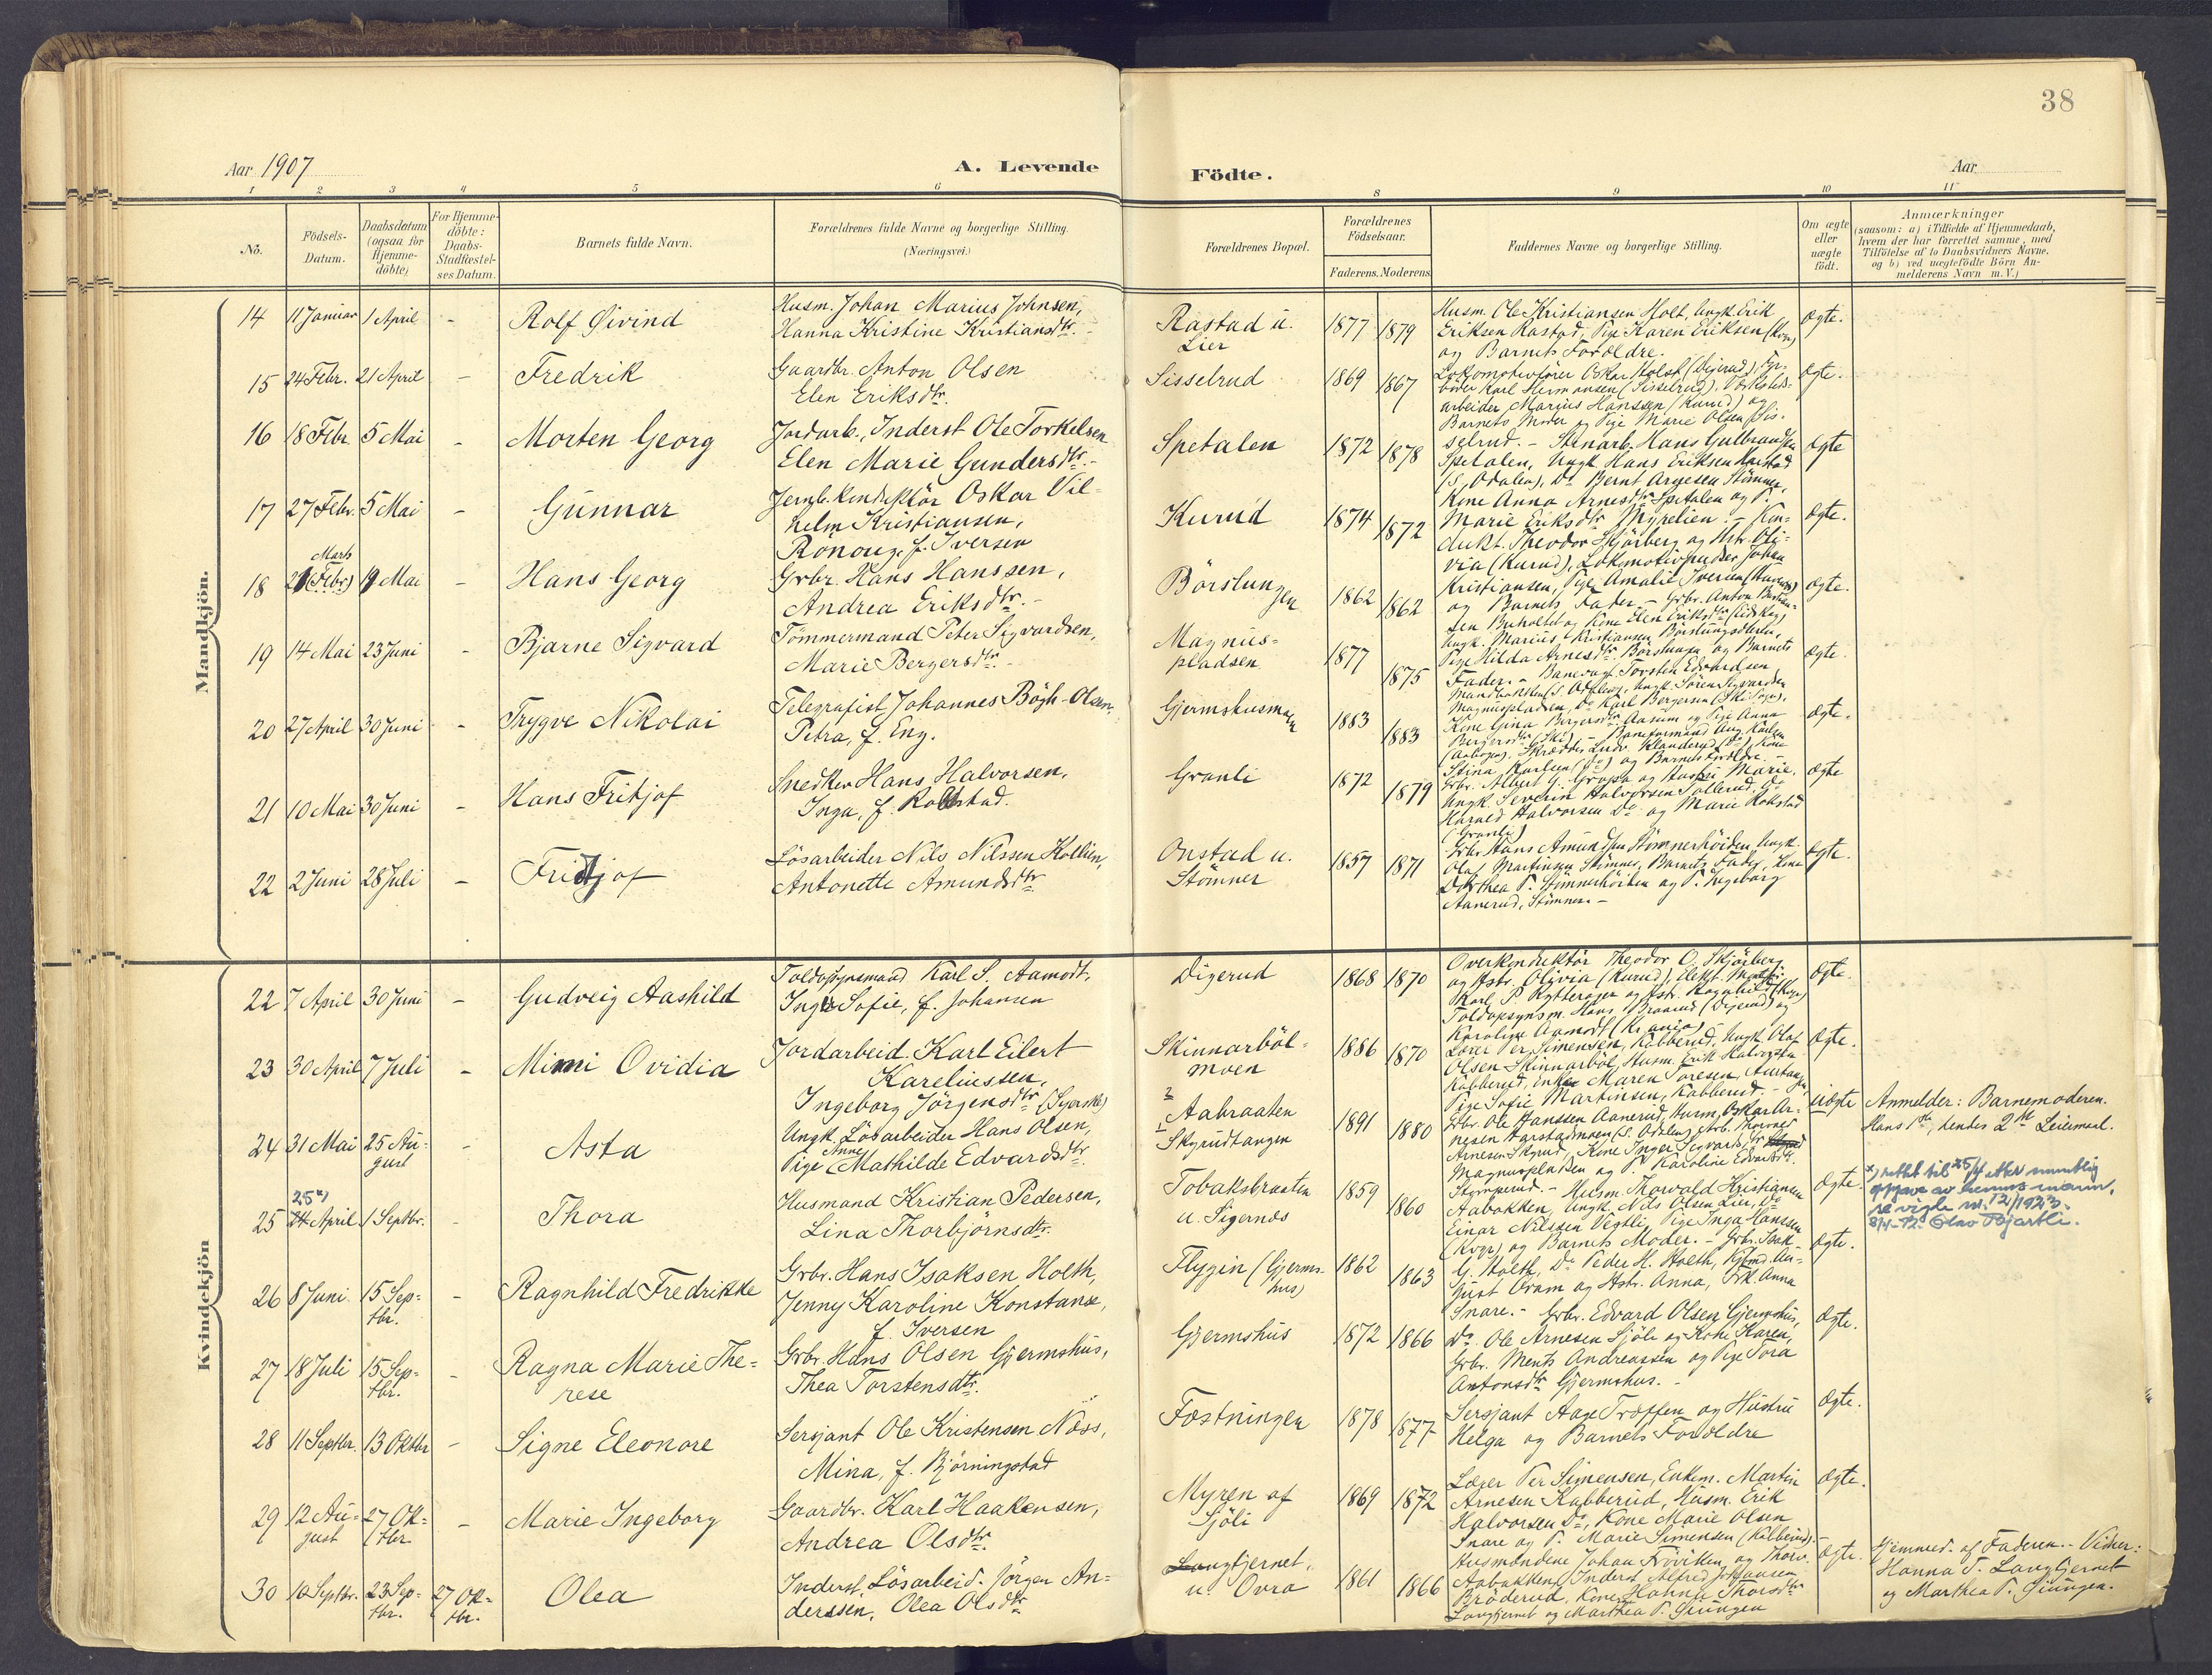 38
Aar 1907
A. Levende
Födte.
Aar
1 2 3 4 5 6 8 9 10 11
No.
Födsels-Datum.
Daabsdatum (ogsaa for Hjemme-döbte)
For Hjemme-döbte: Daabs-Stadfæstel-ses Datum.
Barnets fulde Navn.
Forældrenes fulde Navne og borgerlige Stilling.
(Næringsvei.)
Forældrenes Bopæl.
Forældrenes Födselsaar.
Faderens. Moderens
Faddernes Navne og borgerlige Stilling.
Om ægte eller uægte födt.
Anmærkninger
(saasom: a) i Tilfælde af Hjemmedaab,
hvem der har forrettet samme, med
Tilföielse af to Daabsvidners Navne.
og b) ved uægtefödte Börn An-
melderens Navn m. V.)
Mandkjön.
14 11 Januar 1 April - Rolf Öivind
Husm. Johan Marius Johnsen,
Hanna Kristine Kristiansdtr. -
Rastad u. Lier 1877 1879
Husm. Ole Kristiansen Holt, Ungk. Erik
Eriksen Rastad, Pige Karen Eriksen
og Barnets Forældre.
Ægte.
15 24 Febr. 21 April - Fredrik
Gaardbr. Anton Olsen
Elen Eriksdtr.
Sisselrud 1869 1867
Lokomotivförer Oskar Holst (Digerud),
Karl Hermansen (Sisselrud),
arbeider Marius Hanssen (Kurud) og
Barnets Moder og Pige Marie Olsen Sis-
selrud. -
Ægte.
16 18 Febr. 5 Mai - Morten Georg
Jordarb., Inderst Ole Torkelsen
Elen Marie Gundersdtr. -
Spetalen 1872 1878
Stenarb. Hans Gulbrandsen
Spetalen, Ungk. Hans Eriksen
(S. Odalen), Do Bernt Arnesen Stömner,
Kone Anna Arnesdtr Spetalen og P.
Marie Eriksdtr Myrelien. -
Ægte
17 27 Febr. 5 Mai - Gunnar
Jernb. Konduktör Oskar Vil-
helm Kristiansen,
Ronoug, f. Iversen
Kurud 1874 1872
Kon-
dukt. Theodor Skjörberg og Hstr. Oli-
via (Kurud), Lokomotivpudser Johan
Kristiansen, Pige Amalie Iversen
og Barnets Fader. -
Ægte.
18 21 Marts (Febr.) 19 Mai - Hans Georg
Grbr. Hans Hanssen,
Andrea Eriksdtr. -
Börslungen 1862 1862
Grbr. Anton
og Kone Elen Eriksdtr (Eidskog)
Ungk. Marius Kristiansen
Pige Hilda Arnesdtr Börslungen og Barnets
Fader. -
Ægte.
19 14 Mai 23 Juni - Bjarne Sigvard
Tömmermand Peter Sigvardsen,
Marie Bergersdtr. -
Magnus-
pladsen 1877 1875
Banevagt Torsten Edvardsen
(S. Odalen), Ungk. Sören Sigvardsen
Magnuspladsen, Do Karl Bergersen (Ski Sogn),
Kone Gina Bergersdtr Aasum og Pige Anna
Bergersdtr (Ski). -
Ægte.
20 27 April 30 Juni - Trygve Nikolai
Telegrafist Johannes Bögh-Olsen,
Petra, f. Eng.
Gjermshusmoen 1883 1883
Baneformand Aug. Karlsen
Skrædder Ludv. Klanderud (Do) Kone
Stina Karlsen (Do) og Barnets Forældre.
Ægte.
21 10 Mai 30 Juni - Hans Fritjof
Snedker Hans Halvorsen,
Inga, f. Rokstad.
Granli 1872 1879
Grbr. Albert G. Grasa og Marie,
Ungk. Severin Halvorsen Sollerud, Do
Harald Halvorsen Do og Marie Rokstad
(Granli)
Ægte
22 2 Juni 28 Juli - Fridtjof
Lösarbeider Nils Nilssen Kollien,
Antonette Amundsdtr
Onstad u.
Stömner 1857 1871
Grbr. Hans Amundsen Stömnerhöiden Ungk.
Olaf Martinsen Stömner, Barnets Fader, Kone
Dorthea P. Stömnerhöiden og P. Ingeborg
Aanerud, Stömner. -
Ægte.
Kvindekjön
22 7 April 30 Juni - Gudveig Aashild
Toldopsynsmand Karl S. Aamodt,
Inga Sofie, f. Johansen
Digerud 1868 1870
Overkonduktör Theodor O. Skjörberg
og Hstr. Olivia (Kurud),
Karl P. Rytterager og Hstr. Ragnhild
Toldopsynsm. Hans Braarud (Digerud) og
Karoline Aamodt (Kr.ania)
Ægte.
23 30 April 7 Juli - Mimi Ovidia
Jordarbeid. Karl Eilert
Kareliussen,
Ingeborg Jörgensdtr (Syerske)
Skinnarböl-
moen 1886 1870
Lærer Per Simensen, Kabberud, Ungk. Olaf
Olsen Skinnarböl, Husm. Erik Halvorsen
Kabberud, Enke Maren Toresen,
Pige Sofie Martinsen, Kabberud. -
Ægte.
24 31 Mai 25 Au-
gust - Asta
Ungk. Lösarbeider Hans Olsen,
Pige Anne Mathilde Edvardsdtr.
2 Aabraaten
1 Skyrudtangen 1891 1880
Grbr. Ole Hanssen Aanerud, Husm. Oskar Ar-
nesen Harstadmoen (S. Odalen),
Arnesen Skyrud, Kone Inger Sigvardsdtr
Magnuspladsen og P. Karoline Edvardsdtr.
uægte
Anmelder: Barnemoderen.
Hans 1ste, hendes 2det Leiermaal.
25 25x) 24 April 1 Septbr. - Thora
Husmand Kristian Pedersen,
Lina Thorbjörnsdtr.
Tobaksbraaten
u. Sigernæs 1859 1860
Husm. Thorvald Kristiansen
Aabakken, Ungk. Nils Olsen Lier, Do
Einar Nilssen Vegtli, Pige Inga Hanssen
(Kvgr) og Barnets Moder. -
Ægte.
x) rettet til 25/4 etter muntlig
oppgave av hennes mann,
se vigde nr. 12/1923.
Olav Bjartli.
26 8 Juni 15 Sep-
tbr. - Ragnhild Fredrikke
Grbr. Hans Isaksen Holth,
Jenny Karoline Konstanse,
f. Iversen
Flygin (Gjerms-
hus) 1862 1863
Grbr. Isak
G. Holth, Do Peder H. Holth, Au-
gust Oram og Hstr. Anna, Frk. Anna
Snare. -
Ægte.
27 18 Juli 15 Sep-
tbr. - Ragna Marie The-
rese
Grbr. Hans Olsen Gjermshus,
Thea Torstensdtr.
Gjermshus 1872 1866
Grbr. Edvard Olsen Gjermshus,
Do. Ole Arnesen Sjöli og Kone Karen,
Grbr. Ments Andreassen og Pige Tora
Antonsdtr Gjermshus. -
Ægte.
28 11 Septbr. 13 Oktbr - Signe Eleonore
Sersjant Ole Kristensen Næss,
Mina, f. Björningstad
Fæstningen 1878 1877
Sersjant Aage Træffen og Hustru
Helga og Barnets Forældre
Ægte.
29 12 Au-
gust 27 Ok-
tbr. - Marie Ingeborg
Gaardbr. Karl Haakensen,
Andrea Olsdtr.
Myren af
Sjöli 1869 1872
Lærer Per Simensen, Enkem. Martin
Arnesen Kabberud, Husm. Erik
Halvorsen Do, Kone Marie Olsen
Snare og P. Marie Simensen (Kabberud). -
Ægte.
30 10 Septbr. 23 Sep-
tbr. 27 Ok-
tbr. Olea
Inderst, Lösarbeid. Jörgen An-
derssen, Olea Olsdtr
Langtjernet,
u. Ovra 1861 1866
Husmændene Johan Fröviken og Thorv.
Aabakken, Inderst Alfred Johansen
Bröderud, Kone Hanna Thorsdtr
Langtjernet og Marthea P. Giungen
Ægte.
Hjemmed. af Faderen. - Vidner:
Hanna T. Langtjernet
og Marthea P. Giungen.